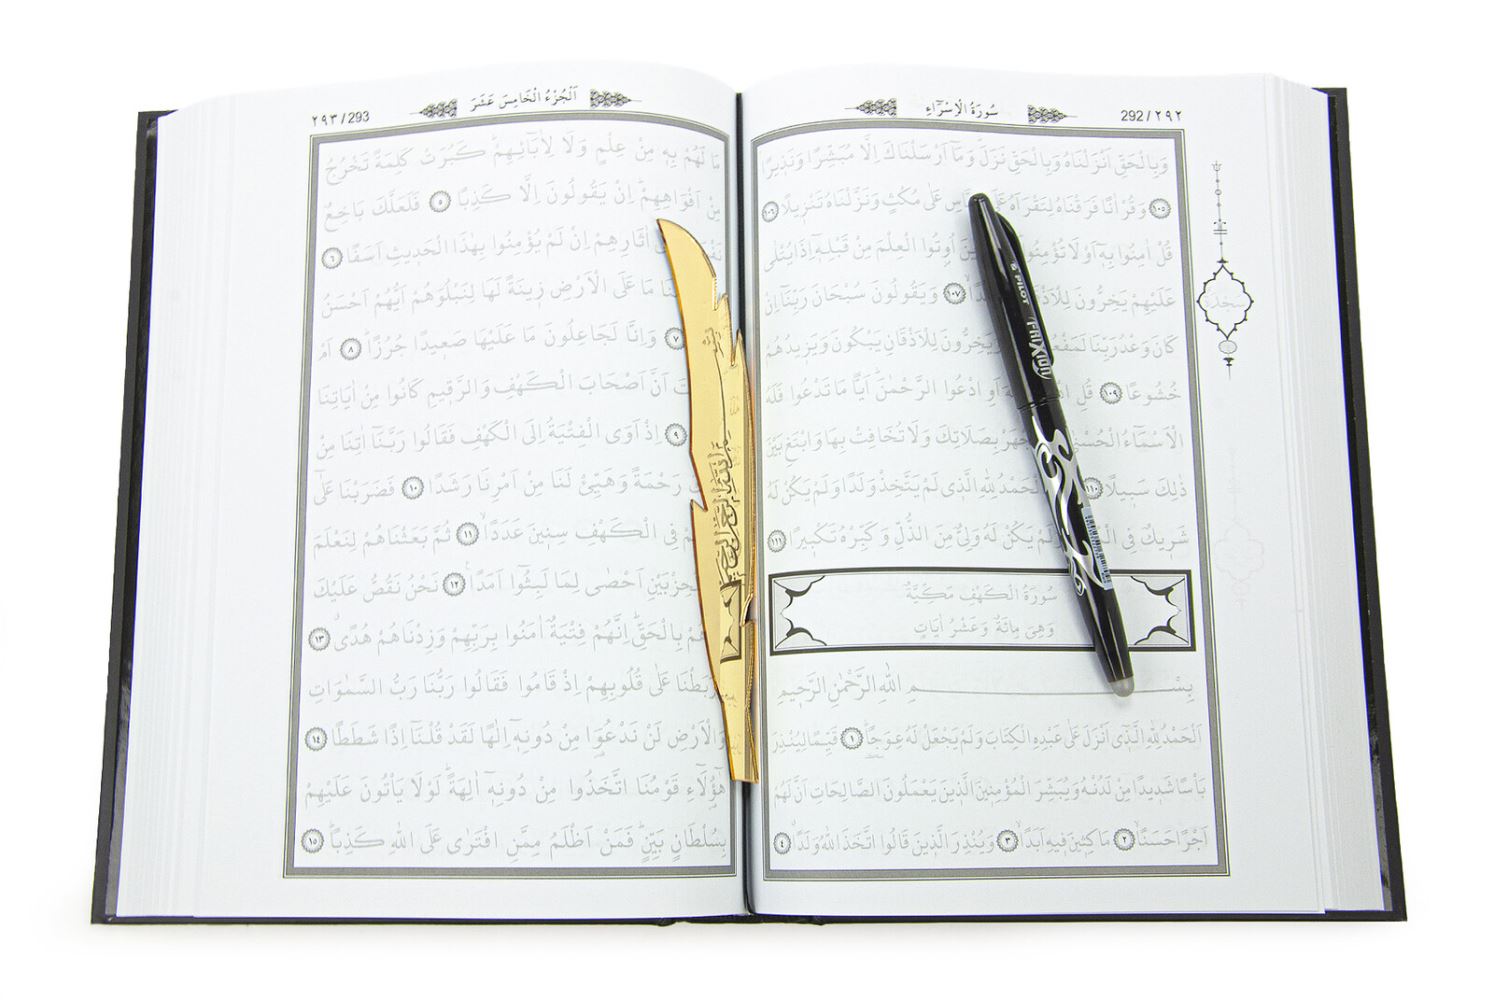 سُورَةُ الْاِسْرَٓاءِ
292 / ٢٩٢
وَبِالْحَقِّ اَنْزَلْنَاهُ وَبِالْحَقِّ نَزَلَ وَمَٓا اَرْسَلْنَاكَ اِلَّا مُبَشِّرًا وَنَذِيرًا
١٠٥ وَقُرْاٰنًا فَرَقْنَاهُ لِتَقْرَاَهُ عَلَى عَلٰى مُكْثٍ وَنَزَّلْنَاهُ تَنْزِيلًا ١٠٦
قُلْ اٰمِنُوا بِه۪ٓ اَوْ لَا تُؤْمِنُوا اُو۫تُوا الْعِلْمَ مِنْ قَبْلِه۪ٓ اِذَا يُتْلٰى
عَلَيْهِمْ يَخِرُّونَ لِلْاَذْقَانِ ١٠٧ وَيَقُولُونَ سُبْحَانَ رَبِّنَٓا اِنْ
كَانَ وَعْدُ رَبِّنَا لَمَفْعُولًا وَيَخِرُّونَ لِلْاَذْقَانِ يَبْكُونَ وَيَزِيدُهُمْ
خُشُوعًا ١٠٩ قُلِ اَوِ ادْعُوا الرَّحْمٰنَ اَيًّا مَا تَدْعُوا فَلَهُ
الْاَسْمَٓاءُ الْحُسْنٰى تَجْهَرْ بِصَلَاتِكَ وَلَا تُخَافِتْ بِهَا وَابْتَغِ بَيْنَ
ذٰلِكَ سَبِيلًا ١١٠ الْحَمْدُ لِلّٰهِ الَّذِى لَمْ يَتَّخِذْ وَلَدًا وَلَمْ يَكُنْ لَهُ
شَرِيكٌ فِى لَمْ يَكُنْ لَهُ وَلِىٌّ مِنَ الذُّلِّ وَكَبِّرْهُ تَكْبِيرًا ١١١
سُورَةُ الْكَهْفِ مَكِّيَّةٌ
وَهِىَ مِائَةٌ وَعَشْرُ اٰيَاتٍ
بِسْمِ اللّٰهِ الرَّحْمٰنِ الرَّحِيمِ
اَلْحَمْدُ لِلّٰهِ الَّذِٓى اَنْزَلَ عَلٰى عَبْدِهِ الْكِتَابَ وَلَمْ يَجْعَلْ لَهُ عِوَجًا ١ قَيِّمًا لِيُنْذِرَ
بَاْسًا شَدِيدًا مِنْ لَدُنْهُ وَيُبَشِّرَ الْمُؤْمِنِينَ الَّذِينَ يَعْمَلُونَ الصَّالِحَاتِ اَنَّ لَهُمْ
اَجْرًا حَسَنًا ٢ مَاكِثِينَ فِيهِ اَبَدًا ٣ وَيُنْذِرَ الَّذِينَ قَالُوا اتَّخَذَ اللّٰهُ وَلَدًا ٤
سجدة
PILOT
FRIXION
اَلْجُزْءُ الْخَامِسَ عَشَرَ
٢٩٣ / 293
مَا لَهُمْ بِه۪ مِنْ عِلْمٍ وَلَا لِاٰبَٓائِهِمْ كَبُرَتْ كَلِمَةً تَخْرُجُ
مِنْ اَفْوَاهِهِمْ اِنْ يَقُولُونَ اِلَّا كَذِبًا ٥ فَلَعَلَّكَ بَاخِعٌ
اٰثَارِهِمْ اِنْ لَمْ يُؤْمِنُوا بِهٰذَا الْحَدِيثِ اَسَفًا ٦
مَا عَلَى الْاَرْضِ زِينَةً لَهَا لِنَبْلُوَهُمْ اَيُّهُمْ اَحْسَنُ
٧ وَاِنَّا لَجَاعِلُونَ مَا عَلَيْهَا صَعِيدًا جُرُزًا ٨ اَمْ
اَنَّ اَصْحَابَ الْكَهْفِ وَالرَّقِيمِ كَانُوا مِنْ اٰيَاتِنَا
٩ اِذْ اَوَى الْفِتْيَةُ اِلَى الْكَهْفِ فَقَالُوا رَبَّنَٓا اٰتِنَا مِنْ
رَحْمَةً وَهَيِّئْ لَنَا مِنْ اَمْرِنَا رَشَدًا ١٠ فَضَرَبْنَا عَلٰٓى
فِى الْكَهْفِ سِنِينَ عَدَدًا ١١ ثُمَّ بَعَثْنَاهُمْ لِنَعْلَمَ
الْحِزْبَيْنِ اَحْصٰى لِمَا لَبِثُٓوا اَمَدًا ١٢ نَحْنُ نَقُصُّ عَلَيْكَ
بِالْحَقِّ اِنَّهُمْ فِتْيَةٌ اٰمَنُوا بِرَبِّهِمْ وَزِدْنَاهُمْ هُدًى ١٣
وَرَبَطْنَا عَلٰى قُلُوبِهِمْ اِذْ قَامُوا فَقَالُوا رَبُّنَا رَبُّ السَّمٰوَاتِ
وَالْاَرْضِ لَنْ نَدْعُوَ۬ا مِنْ دُونِه۪ٓ اِلٰهًا لَقَدْ قُلْنَٓا اِذًا شَطَطًا ١٤
هٰٓؤُ۬لَٓاءِ قَوْمُنَا اتَّخَذُوا مِنْ دُونِه۪ٓ اٰلِهَةً لَوْلَا يَاْتُونَ عَلَيْهِمْ
بِسُلْطَانٍ بَيِّنٍ فَمَنْ اَظْلَمُ مِمَّنِ افْتَرٰى عَلَى اللّٰهِ كَذِبًا ١٥
بِسْمِ اللهِ الرَّحْمٰنِ الرَّحِيمِ